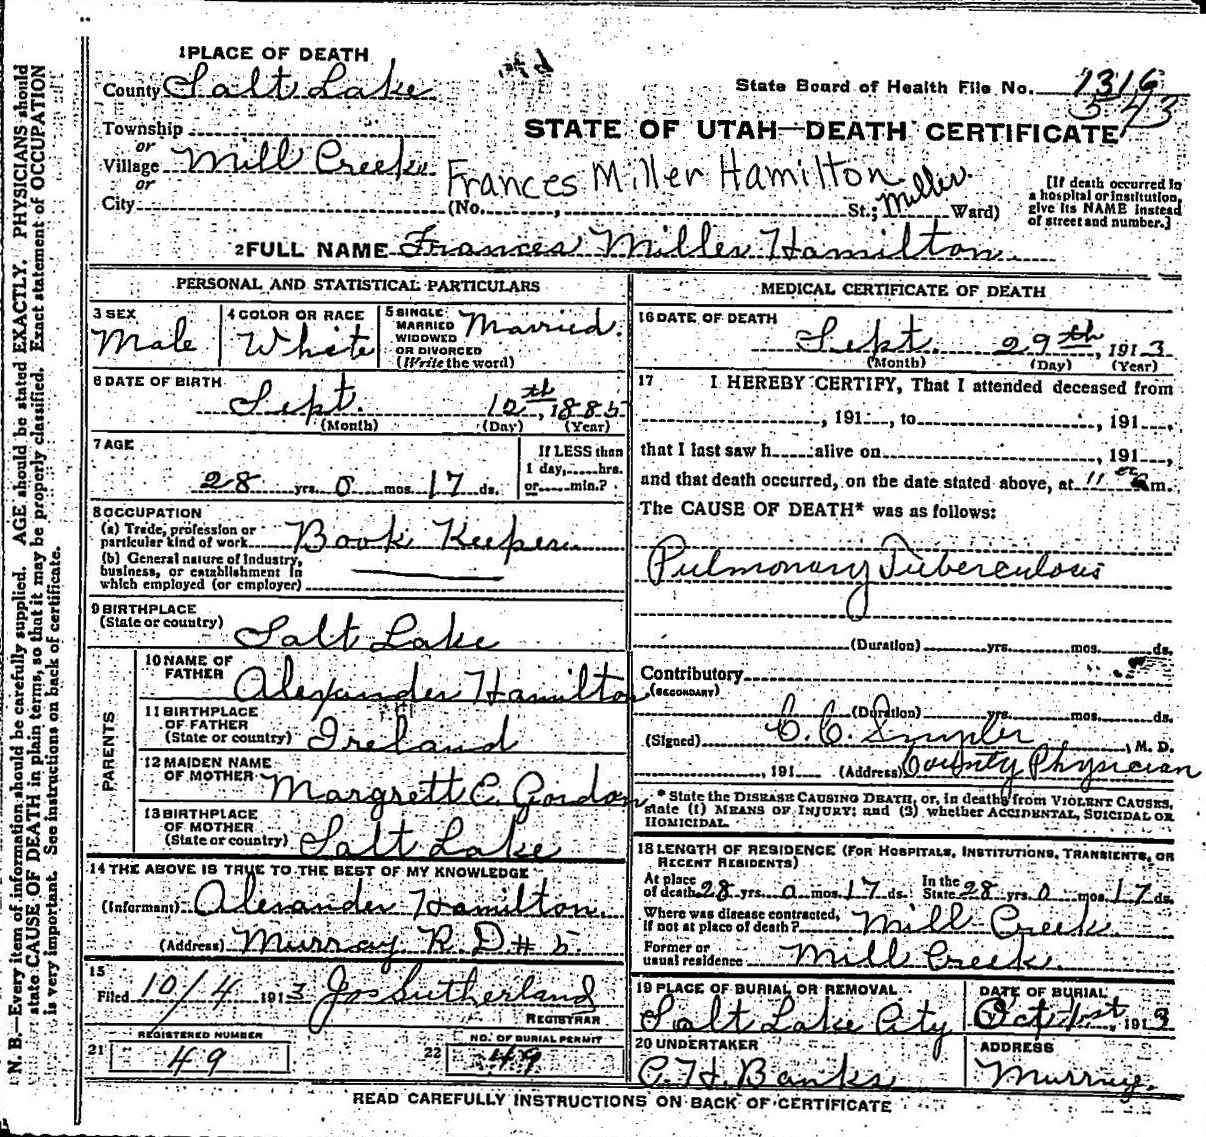 1 PLACE OF DEATH
County Salt Lake
State Board of Health File No. 1316
543
Township
or
Village Mill Creek
or
City
STATE OF UTAH—DEATH CERTIFICATE
Frances Miller Hamilton
(No. , St.; Miller. Ward)
[If death occurred in
a hospital or institution,
give its NAME instead
of street and number.]
2 FULL NAME Frances Miller Hamilton.
PERSONAL AND STATISTICAL PARTICULARS
3 SEX
Male
4 COLOR OR RACE
White
5 SINGLE
MARRIED
WIDOWED
OR DIVORCED
(Write the word)
Married.
6 DATE OF BIRTH
Sept. 12th, 1885
(Month) (Day) (Year)
7 AGE
28 yrs. 0 mos. 17 ds.
If LESS than
1 day, hrs.
or min.?
8 OCCUPATION
(a) Trade, profession or
particular kind of work Book Keeper
(b) General nature of industry,
business, or establishment in
which employed (or employer)
9 BIRTHPLACE
(State or country) Salt Lake
PARENTS
10 NAME OF
FATHER Alexander Hamilton
11 BIRTHPLACE
OF FATHER
(State or country) Ireland
12 MAIDEN NAME
OF MOTHER Margrett C. Gordon
13 BIRTHPLACE
OF MOTHER
(State or country) Salt Lake
14 THE ABOVE IS TRUE TO THE BEST OF MY KNOWLEDGE
(Informant) Alexander Hamilton
(Address) Murray R. D # 5
15
Filed 10/4 1913 Jos Sutherland
REGISTRAR
REGISTERED NUMBER
21 49
NO. OF BURIAL PERMIT
22 49
MEDICAL CERTIFICATE OF DEATH
16 DATE OF DEATH
Sept. 29th, 1913
(Month) (Day) (Year)
17 I HEREBY CERTIFY, That I attended deceased from
, 191 , to , 191 ,
that I last saw h alive on , 191 ,
and that death occurred, on the date stated above, at 11 m.
The CAUSE OF DEATH* was as follows:
Pulmonary Tuberculosis
(Duration) yrs. mos. ds.
Contributory
(SECONDARY)
(Duration) yrs. mos. ds.
(Signed) C. C. , M. D.
, 191 (Address) County Physician
* State the DISEASE CAUSING DEATH, or, in deaths from VIOLENT CAUSES,
state (1) MEANS OF INJURY; and (2) whether ACCIDENTAL, SUICIDAL OR
HOMICIDAL.
18 LENGTH OF RESIDENCE (FOR HOSPITALS, INSTITUTIONS, TRANSIENTS, OR
RECENT RESIDENTS)
At place
of death 28 yrs. 0 mos. 17 ds.
In the
State 28 yrs. 0 mos. 17 ds.
Where was disease contracted,
if not at place of death? Mill Creek.
Former or
usual residence Mill Creek.
19 PLACE OF BURIAL OR REMOVAL
Salt Lake City
DATE OF BURIAL
Oct 1st, 1913
20 UNDERTAKER
C. H. Banks
ADDRESS
Murray.
READ CAREFULLY INSTRUCTIONS ON BACK OF CERTIFICATE
N. B.—Every item of information should be carefully supplied. AGE should be stated EXACTLY. PHYSICIANS should
state CAUSE OF DEATH in plain terms, so that it may be properly classified. Exact statement of OCCUPATION
is very important. See instructions on back of certificate.